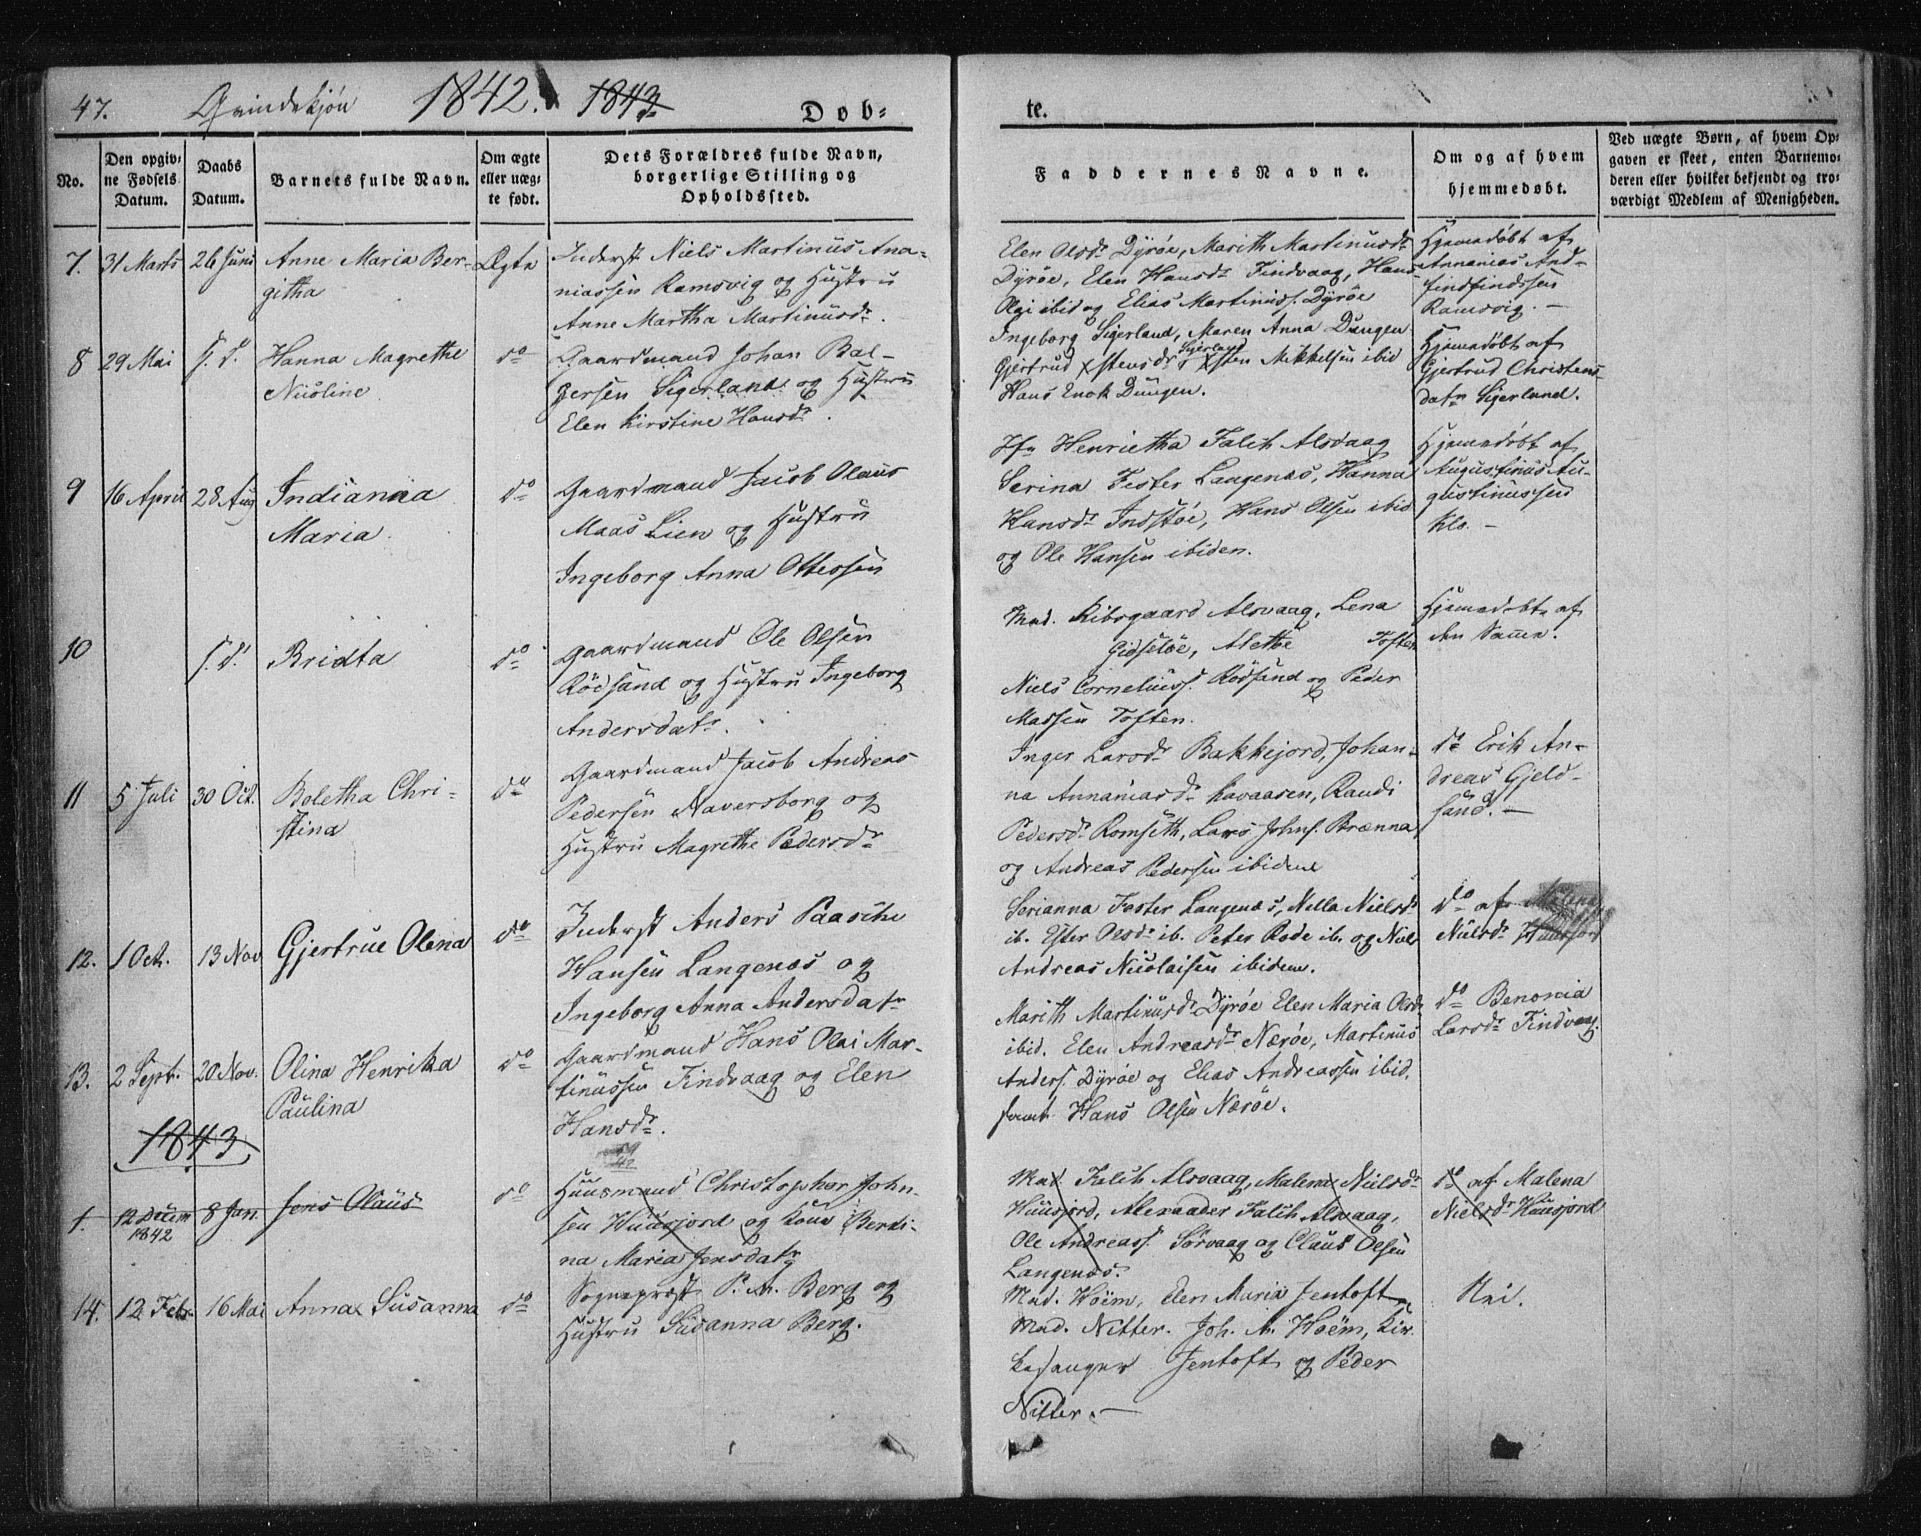 47. Qvindekjön 1842. 1843. Døb-
te.
No.
Den opgiv-
ne Fødsels
Datum.
Daabs
Datum.
Barnets fulde Navn.
Om ægte
eller uæg-
te født.
Dets Forældres fulde Navn,
borgerlige Stilling og
Opholdssted.
Faddernes Navne.
Om og af hvem
hjemmedøbt.
Ved uægte Børn, af hvem Op-
gaven er skeet, enten Barnemo-
deren eller hvilket bekjendt og tro-
værdigt Medlem af Menigheden.
7. 31 Marts 26 Juni Anne Maria Ber-
githa
Ægte
Inderst Niels Martinus Ana-
niassen Ramsvig og Hustru
Anne Martha Martinusdr.
Elen Olsdr Dyröe, Marith Martinusdr
Dyröe, Elen Hansdr Findvaag, Hans
Olai ibid og Elias Martinuss. Dyröe
Hjemedöbt af
Annanias And-
findfindssen
Ramsvig. -
8 29 Mai s. d. Hanna Magrethe
Nicoline
do
Gaardmand Johan Bal-
zersen Sigerland og Hustru
Elen Kirstine Hansdr.
Ingeborg Sigerland, Maren Anna Dungen
Gjertrud Xstensdr Sigerland Xsten Mikkelsen ibid
Hans Enok Dungen.
Hjemedöbt af
Gjertrud Christens-
datr Sigerland.
9 16 April 28 Aug Indianna
Maria
do
Gaardmand Jacob Olaus
Maas Lien og Hustru
Ingeborg Anna Ottessen
Jfr Henrietha Falch Alsvaag
Serina Fester Langenæs, Hanna
Hansdr Indstöe, Hans Olsen ibid
og Ole Hansen ibiden.
Hjemedöbt af
Augustinus Au-
gustinussen
Klo. -
10 s. d. Bridta
do
Gaardmand Ole Olsen
Rödsand og Hustru Ingeborg
Andersdatr.
Mad. Ribsgaard Alsvaag, Lena
Gidsetöe, Alethe Toften
Niels Corneliuss. Rödsand og Peder
Massen Toften.
Hjemedöbt af
den Samme.
11 5 Juli 30 Oct. Beletha Chri-
stina
do
Gaardmand Jacob Andreas
Pedersen Naversborg og
Hustru Magrethe Pedersdr
Inger Larsdr Bakkejord, Johan-
na Annaniasdr Kavaasen, Randi
Pedersdr Romseth, Lars Johns. Brænna
og Andreas Pedersen ibidem
do Erik An-
dreas Gjeld-
sand. -
12. 1 Oct. 13 Nov. Gjertrue Olena
do
Inderst Anders Paasche
Hansen Langenæs og
Ingeborg Anna Andersdatr
Serianna Fester Langenæs, Nella Nielsdr
ib. Ester Olsdr ib. Peter Rode ib. og Niels
Andreas Nicolaisen ibidem.
do af Malena
Nielsdr Huusjord
13. 2 Sept. 20 Nov. Olina Henrika
Paulina
do
Gaardmand Hans Olai Mar-
tinussen Findvaag og Elen
Hansdr.
Marith Martinusdr Dyröe Elen Maria Olsdr
ibid. Elen Andreasdr Næröe, Martinus
Anders. Dyröe og Elias Andreassen ibid.
samt Hans Olsen Næröe.
do Benonia
Larsdr Findvaag.
1843
1. 12 Decem
1842
8 Jan. Jens Olaus
do
Huusmand Christopher John-
sen Huusjord og Kone Berdi-
na Maria Jensdatr
Mad. Falch Alsvaag, Malena Nielsdr
Huusjord, Alexander Falch Alsvaag,
Ole Andreass. Sörvaag og Claus Olsen
Langenæs.
do af Malena
Nielsdr Huusjord
14. 12 Febr. 16 Mai Anna Susanna
do
Sogneprest P. A. Berg og
Hustru Susanna Berg.
Mad. Hoëm, Elen Maria Jentoft,
Mad. Nitter. Joh. A. Hoëm, Kir-
kesanger Jentoft og Peder
Nitter. -
Nei.